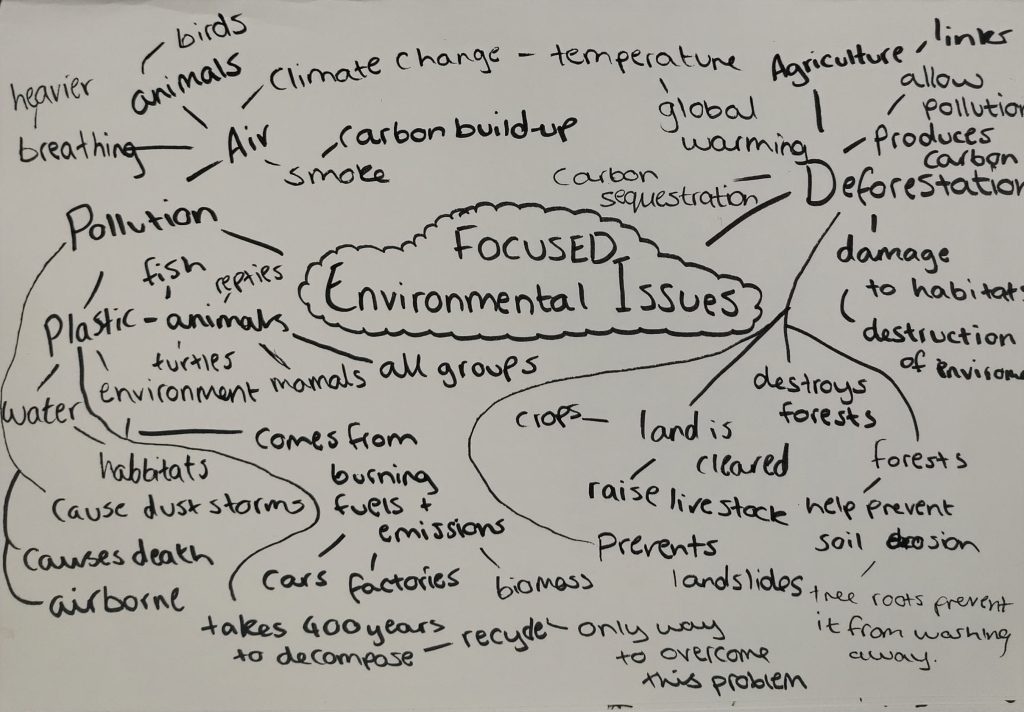 birds
animals
heavier
breathing
Air
Climate Change - temperature
global
warming
carbon build-up
smoke
Agriculture
links
allow
pollution
produces
carbon
Carbon
sequestration
Deforestation
damage
to habitats
destruction
of
FOCUSED
Environmental Issues
Pollution
fish
Plastic - animals
turtles
environment
mamals
all groups
water
habbitats
comes from
burning
fuels +
emissions
cars
factories
biomass
cause dust storms
causes death
airborne
takes 400 years
to decompose
recycle
only way
to overcome
this problem
crops
land is
cleared
raise livestock
destroys
forests
forests
help prevent
soil
tree roots prevent
it from washing
away.
Prevents
landslides